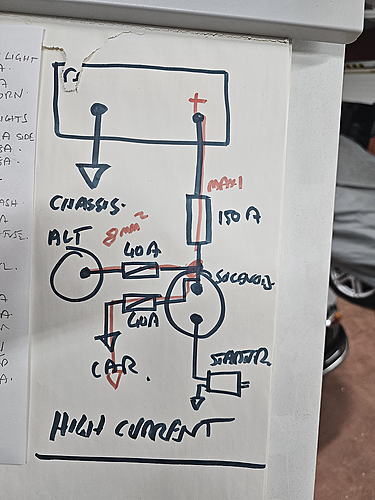 LIGHT
A.
A
ORN.
IGHTS
A SIDE
5A.
5A.
+
MAXI
150A
CHASSIS.
8mm²
ALT
40A
SOLENOID
40A
CAR.
STARTER
HIGH CURRENT
ASH
FUSE.
A
A.